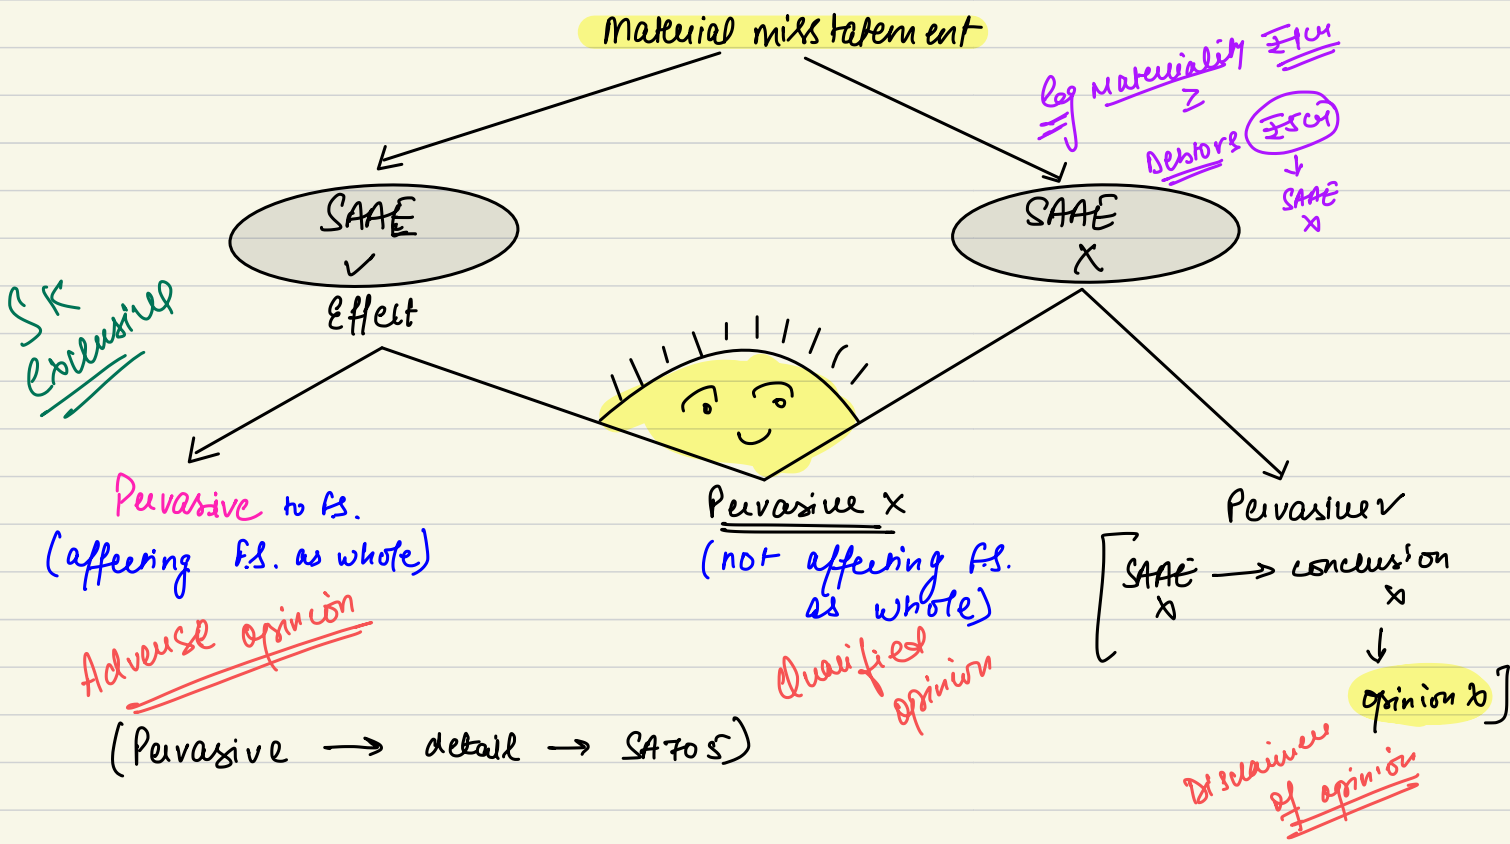 Material misstatement
eg Materiality ₹1cr
≥
Debtors ₹5cr
↓
SAAE
X
SAAE
✓
Effect
SAAE
X
SK
Exclusive
Pervasive to F.S.
(affecting F.S. as whole)
Adverse opinion
Pervasive X
(not affecting F.S.
as whole)
Qualified
opinion
Pervasive ✓
[SAAE → conclusion
X X
↓
opinion X]
Disclaimer
of opinion
(Pervasive → detail → SA705)